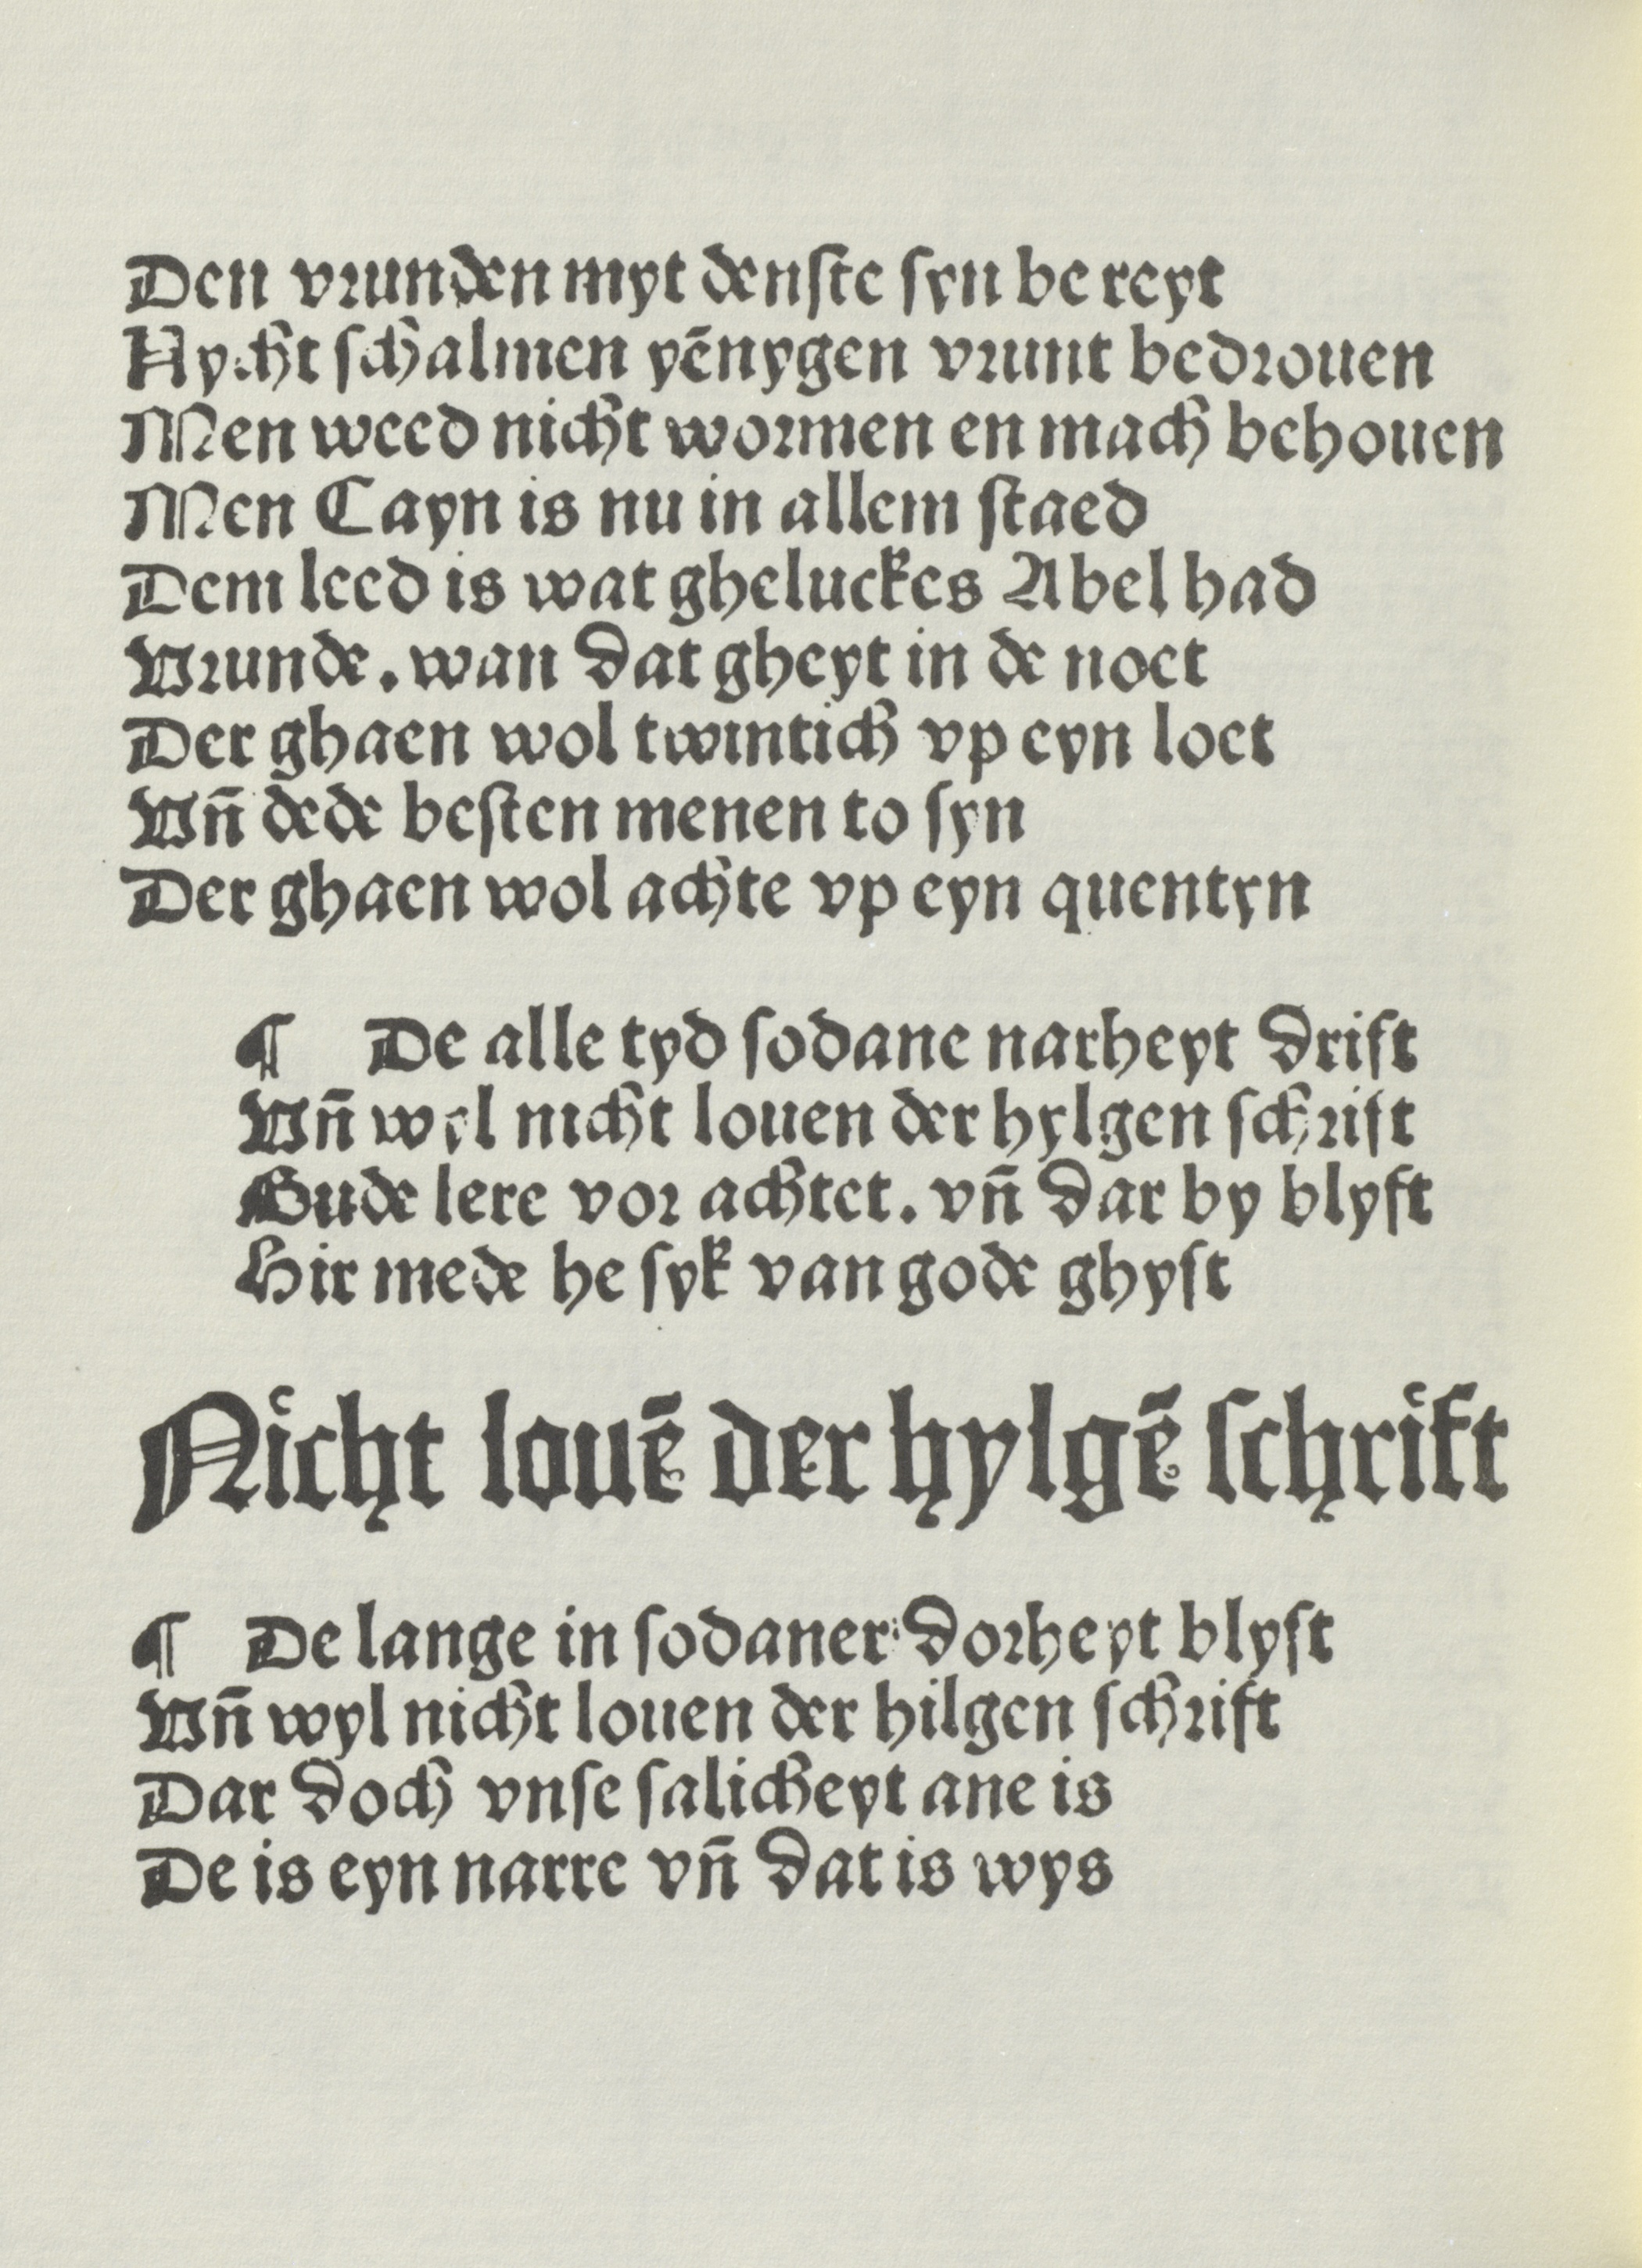 Den vrunden myt denſte ſyn be reyt
Nycht ſchalmen yēnygen vrunt bedrouen
Men weed nicht wormen en mach behouen
Men Cayn is nu in allem ſtaed
Dem leed is wat gheluckes Abel had
Vrunde. wan dat gheyt in de noet
Der ghaen wol twintich vp eyn loet
Vn̄ dede beſten menen to ſyn
Der ghaen wol achte vp eyn quentyn
¶ De alle tyd ſodane narheyt drift
Vn̄ wyl nicht louen der hylgen ſchrift
Gude lere vor achtet. vn̄ dar by blyft
Hir mede he ſyk van gode ghyft
Nicht louē der hylgē ſchrift
¶ De lange in ſodaner dorheyt blyft
Vn̄ wyl nicht louen der hilgen ſchrift
Dar doch vnſe ſalicheyt ane is
De is eyn narre vn̄ dat is wys